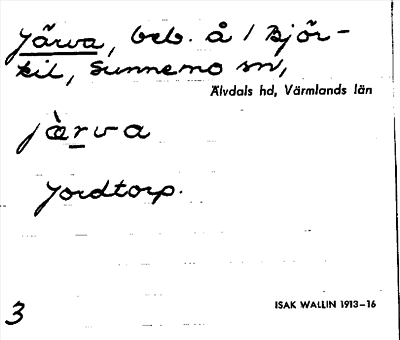 Järva, beb. å 1 Björ-
kil, Sunnemo sn,
Älvdals hd, Värmlands län
jàrva
Jordtorp.
3 ISAK WALLIN 1913–16